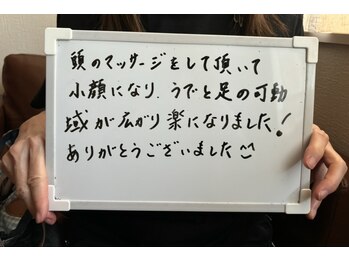 頭のマッサージをして頂いて
小顔になり、うでと足の可動
域が広がり楽になりました！
ありがとうございました^^